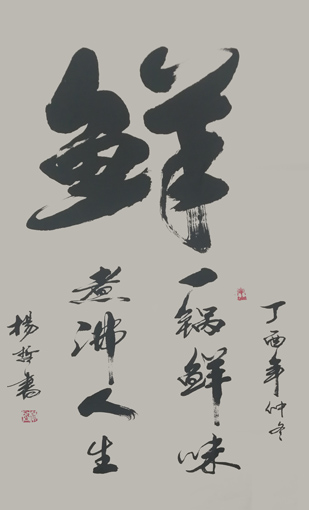 鲜
丁酉年仲冬
一锅鲜味
煮沸人生
杨哲书